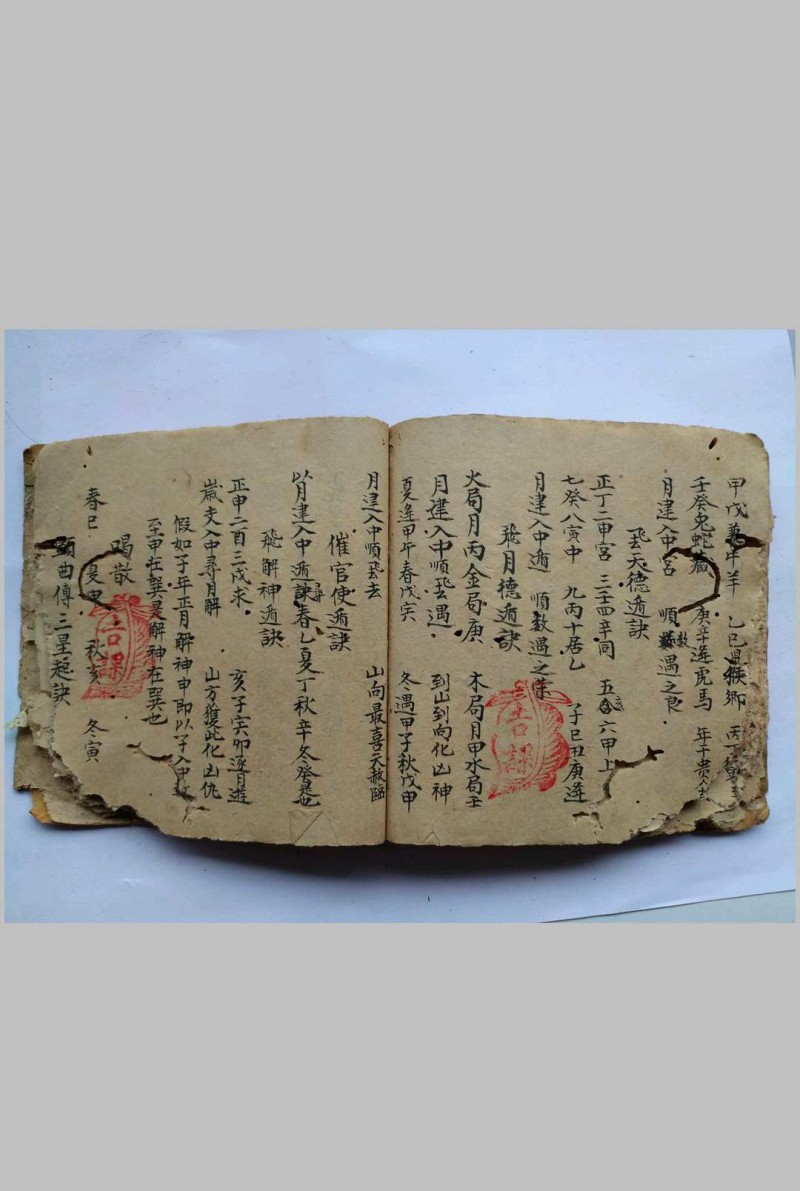 甲戊 牛羊 乙己鼠猴鄉 丙丁
壬癸兔蛇藏 庚辛逢虎馬 年干貴人去
月建入中宮 順數遇之良
飛天德遁訣
正丁二申宮 三壬四辛同 五亥六甲上
七癸八寅中 九丙十居乙 子巳丑庚逢
月建入中遁 順數遇之
飛月德遁訣
火局月丙金局庚 木局月甲水局壬
月建入中順飛遇 到山到向化凶神
夏逢甲午春戊寅 冬遇甲子秋戊申
月建入中順飛去 山向最喜天赦臨
催官使遁訣
以月建入中遁尋春乙夏丁秋辛冬癸是也
飛解神遁訣
正申二酉三戌求 亥子寅卯逐月遊
歲支入中尋月解 山方獲此化凶仇
假如子年正月解神申即以子入中
至申在巽是解神在巽也
喝散
春巳 夏申 秋亥 冬寅
曲傳三星起訣
吉課
吉課